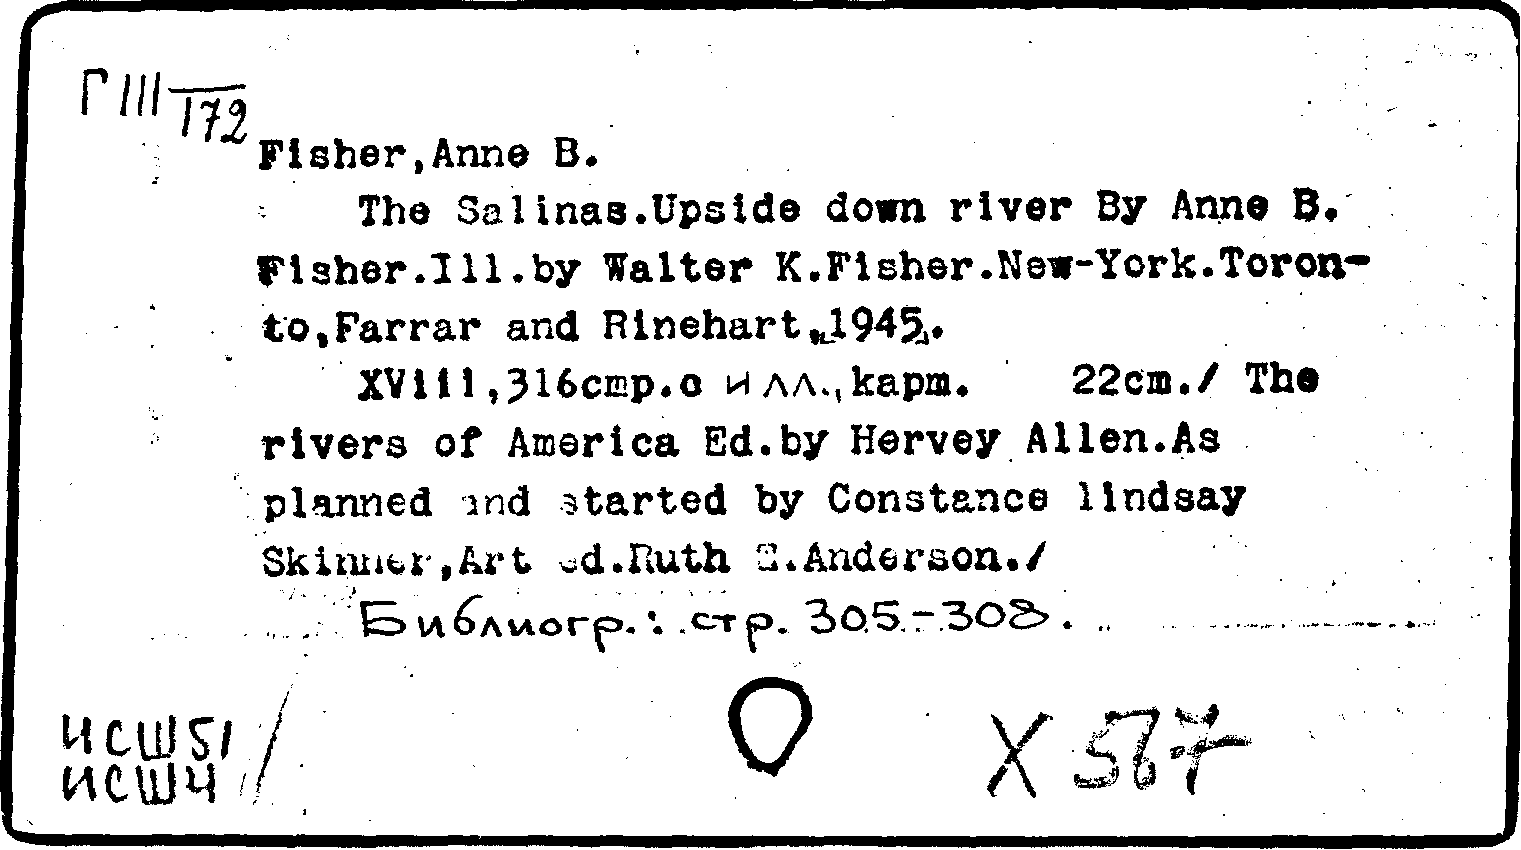 Г III
172
Fisher,Anne B.
The Salinas.Upside down river By Anne B.
Fisher.Ill.by Walter K.Fisher.New-York.Toron-
to,Farrar and Rinehart,1945.
XViii,316стр.с илл.,карт. 22cm./ The
rivers of America Ed.by Hervey Allen.As
planned and started by Constance lindsay
Skinner,Art ed.Ruth E.Anderson./
Библиогр.: стр. 305-308.
ИСШ51
ИСШ4
X 567